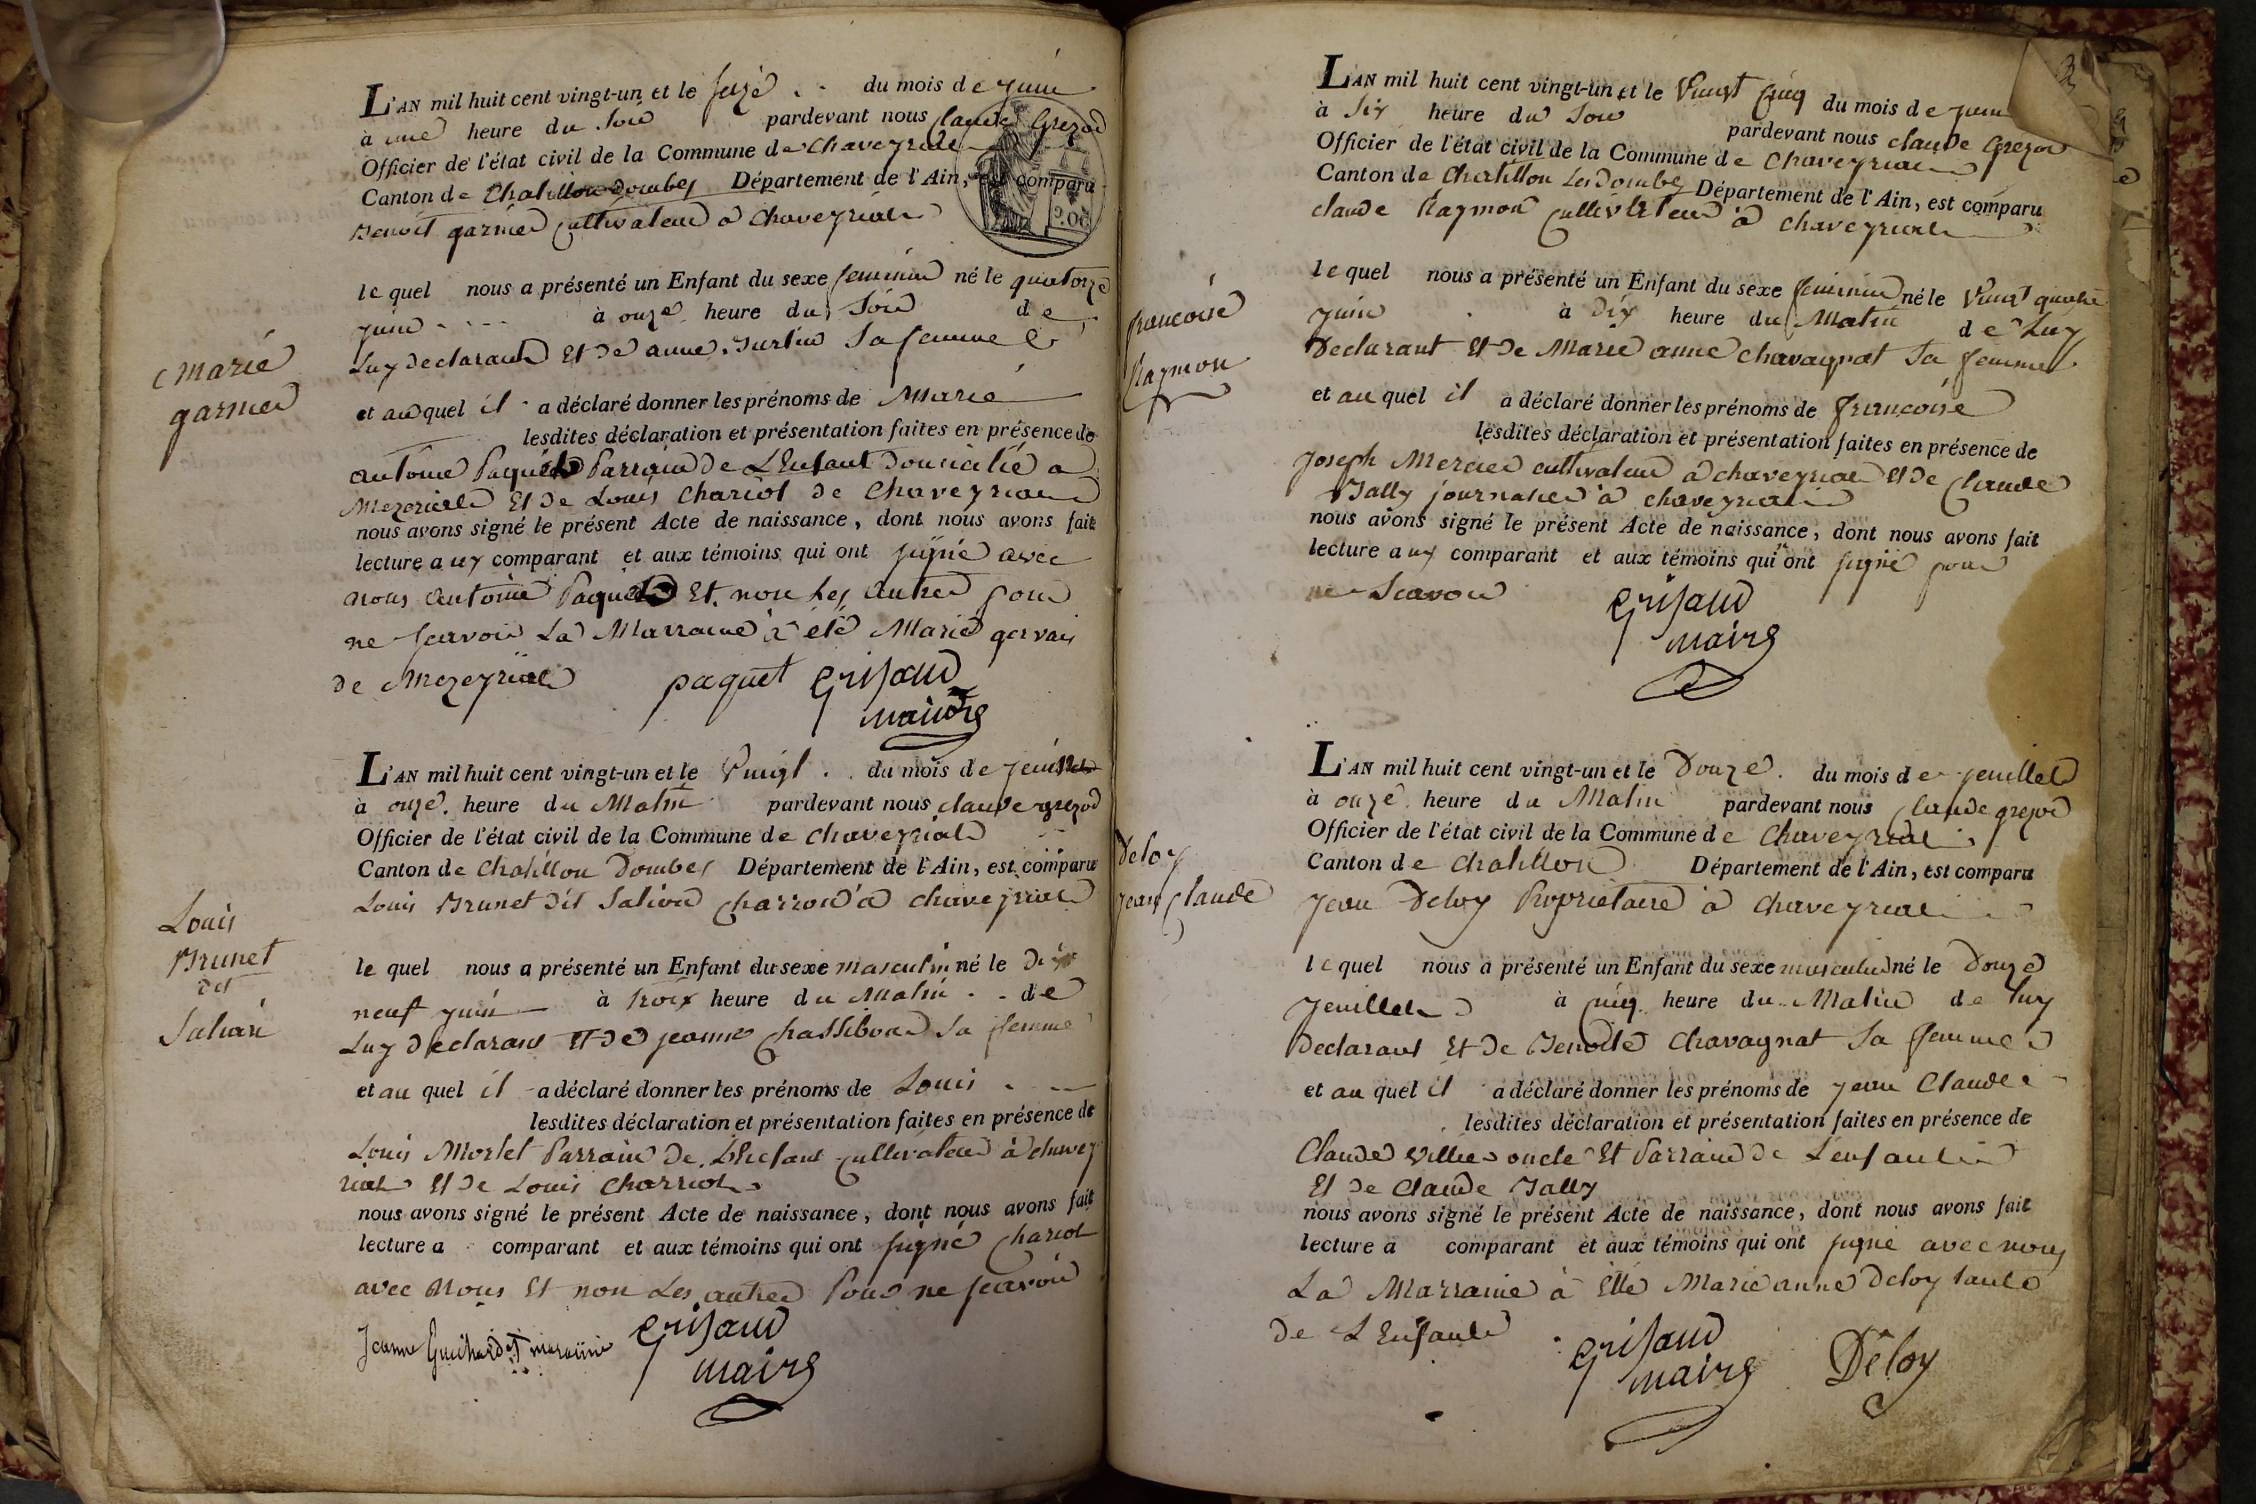 L'AN mil huit cent vingt-un et le seize du mois de juin
à une heure du soir pardevant nous Claude Grezod
Officier de l'état civil de la Commune de Chaveyriat
Canton de Chatillon Dombes Département de l'Ain, est comparu
2.00
Benoit garnier Cultivateur à Chaveyriat
Marie
garnier
le quel nous a présenté un Enfant du sexe feminin né le quatorze
juin à onze heure du Soir de
Luy declarant Et de anne Surlin Sa femme
et au quel il a déclaré donner les prénoms de Marie
lesdites déclaration et présentation faites en présence de
antoine Paquet Parrain de L'Enfant domicilié a
Mezeriat Et de Louis Chariot de Chaveyriat
nous avons signé le présent Acte de naissance, dont nous avons fait
lecture a ux comparant et aux témoins qui ont signé avec
nous antoine Paquet Et non Les autres pour
ne scavoir La Marraine à été Marie gervais
de Mezeyriat
paquet Grisaud
maire
L'AN mil huit cent vingt-un et le Vingt du mois de juin
à onze heure du Matin pardevant nous Claude grezod
Officier de l'état civil de la Commune de Chaveyriat
Canton de Chatillon Dombes Département de l'Ain, est comparu
Louis Brunet dit Salien Charron à Chaveyriat
Louis
Brunet
dit
le quel nous a présenté un Enfant du sexe masculin né le dix
neuf juin à trois heure du Matin de
Luy declarant Et de jeanne Chassibout Sa femme
et au quel il a déclaré donner les prénoms de Louis
lesdites déclaration et présentation faites en présence de
Louis Morlet Parrain de L'Enfant cultivateur à chavey
riat Et de Louis Charriot
nous avons signé le présent Acte de naissance, dont nous avons fait
lecture a comparant et aux témoins qui ont signé Chariot
avec Nous Et non Les autres Pour ne scavoir
Jeanne Guichardet maraine
Grisaud
maire
L'AN mil huit cent vingt-un et le Vingt Cinq du mois de juin
à Six heure du Soir pardevant nous Claude Grezod
Officier de l'état civil de la Commune de Chaveyriat
Canton de Chatillon Les Dombes Département de l'Ain, est comparu
Claude Raymon Cultivateur à Chaveyriat
francoise
Raymon
le quel nous a présenté un Enfant du sexe feminin né le Vingt quatre
juin à dix heure du Matin de Luy
Declarant Et de Marie anne Chavagnat Sa femme
et au quel il a déclaré donner les prénoms de françoise
lesdites déclaration et présentation faites en présence de
Joseph Mercier cultivateur à Chaveyriat Et de Claude
Jally journalier à chaveyriat
nous avons signé le présent Acte de naissance, dont nous avons fait
lecture a ux comparant et aux témoins qui n'ont signé pour
ne Scavoir
Grisaud
maire
L'AN mil huit cent vingt-un et le Douze du mois de jeuillet
à onze heure du Matin pardevant nous Claude grezod
Officier de l'état civil de la Commune de Chaveyriat
Canton de Chatillon Département de l'Ain, est comparu
Jean Deloy Propriétaire à Chaveyriat
Deloy
jean Claude
le quel nous a présenté un Enfant du sexe masculin né le Douze
jeuillet à cinq heure du Matin de Luy
declarant Et de Benoite Chavagnat Sa femme
et au quel il a déclaré donner les prénoms de jean Claude
lesdites déclaration et présentation faites en présence de
Claude Villier oncle Et Parrain de L'enfant
Et de Claude Jally
nous avons signé le présent Acte de naissance, dont nous avons fait
lecture a comparant et aux témoins qui ont signé avec nous
La Marraine à Etté Marie anne Deloy tante
de L'Enfant
Grisaud
maire
Deloy